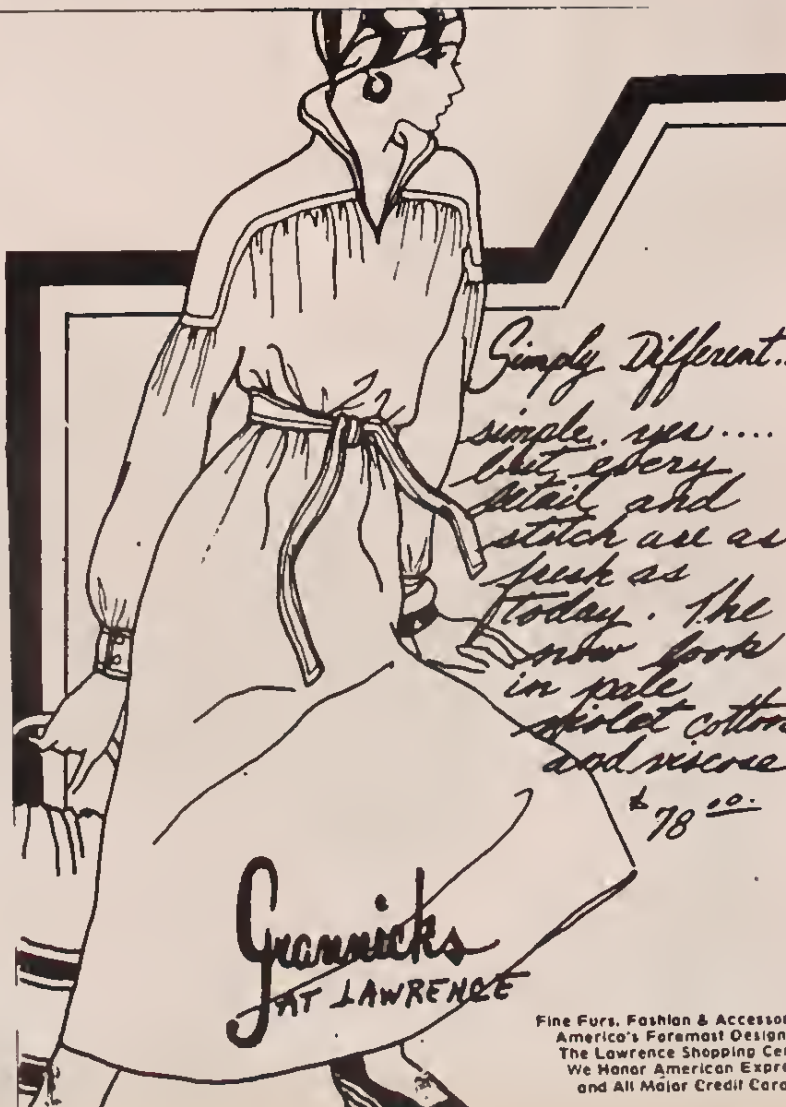 Simply Different..
simple. yes....
but every
detail and
stitch are as
fresh as
today. The
now look
in pale
violet cotton
and viscose
$78.00.
Grannicks
AT LAWRENCE
Fine Furs, Fashion & Accessor
America's Foremost Design
The Lawrence Shopping Cen
We Honor American Expre
and All Major Credit Card